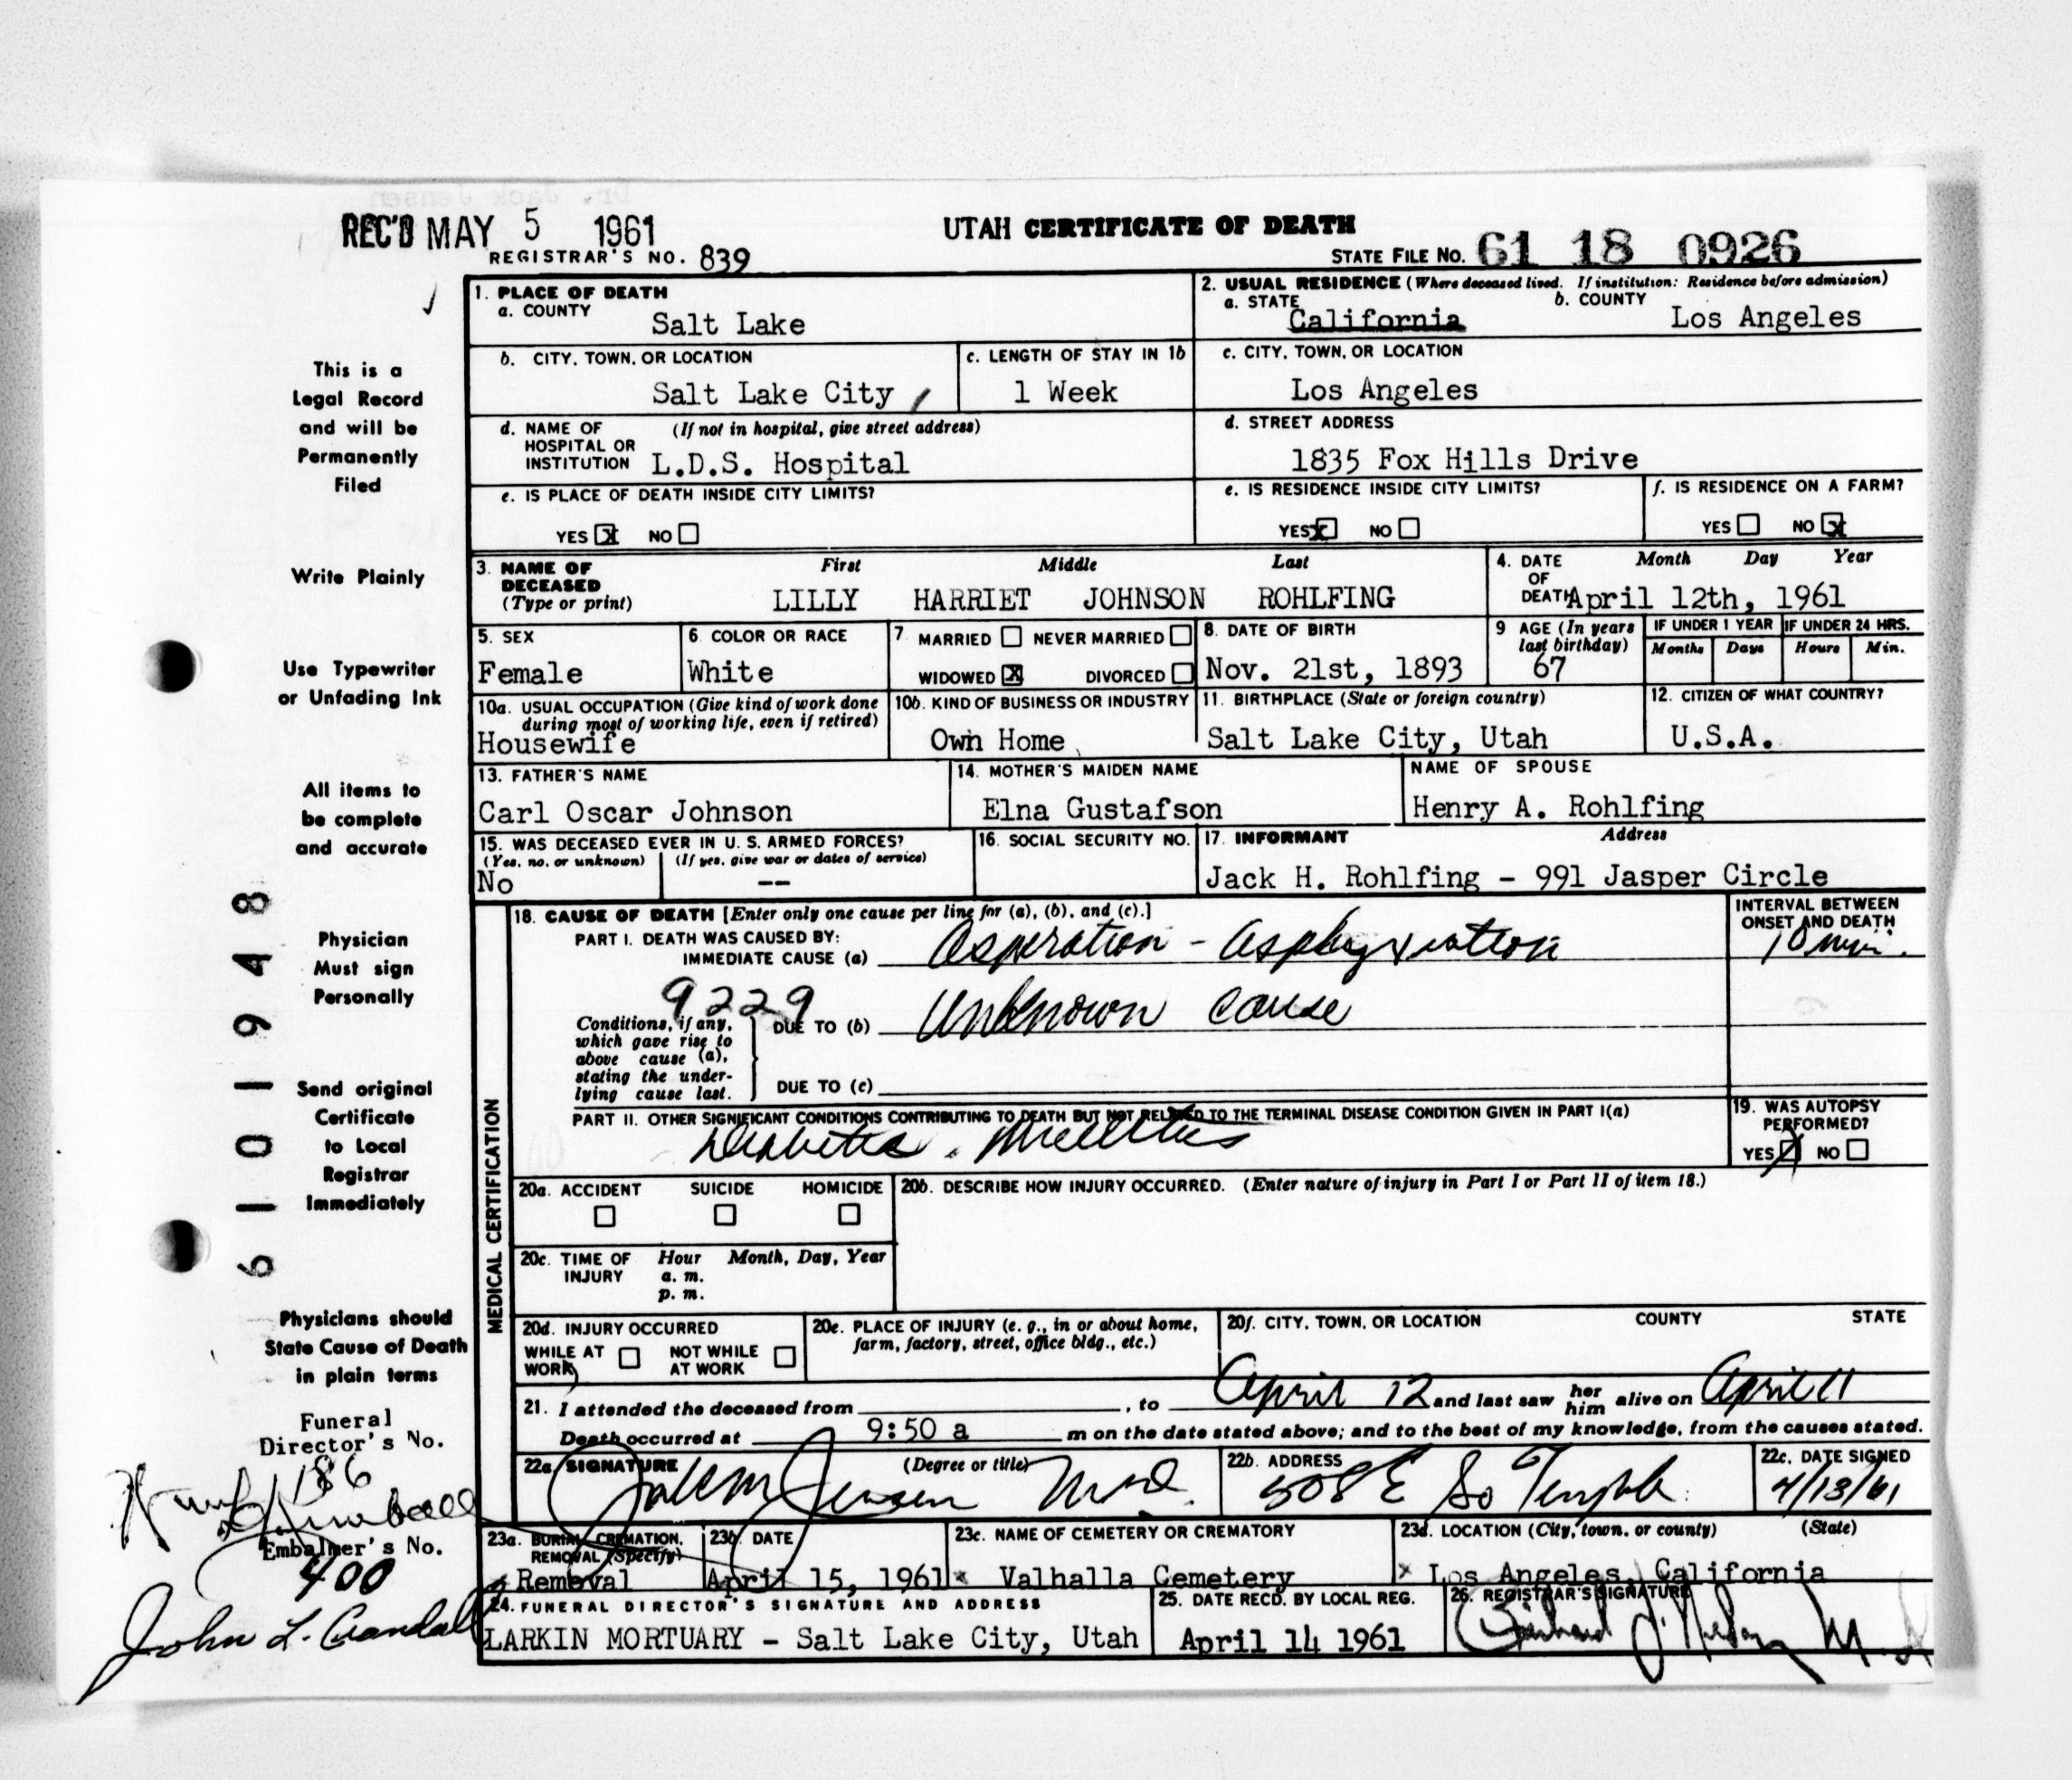 REC'D MAY 5 1961
UTAH CERTIFICATE OF DEATH
REGISTRAR'S NO. 839
STATE FILE NO. 61 18 0926
1. PLACE OF DEATH
a. COUNTY
Salt Lake
2. USUAL RESIDENCE (Where deceased lived. If institution: Residence before admission)
a. STATE
California
b. COUNTY
Los Angeles
b. CITY, TOWN, OR LOCATION
Salt Lake City
c. LENGTH OF STAY IN 1b
1 Week
c. CITY, TOWN, OR LOCATION
Los Angeles
d. NAME OF HOSPITAL OR INSTITUTION
(If not in hospital, give street address)
L.D.S. Hospital
d. STREET ADDRESS
1835 Fox Hills Drive
e. IS PLACE OF DEATH INSIDE CITY LIMITS?
YES X NO
e. IS RESIDENCE INSIDE CITY LIMITS?
YES X NO
f. IS RESIDENCE ON A FARM?
YES NO X
3. NAME OF DECEASED
(Type or print)
First Middle Last
LILLY HARRIET JOHNSON ROHLFING
4. DATE OF DEATH
Month Day Year
April 12th, 1961
5. SEX
Female
6. COLOR OR RACE
White
7. MARRIED NEVER MARRIED
WIDOWED X DIVORCED
8. DATE OF BIRTH
Nov. 21st, 1893
9 AGE (In years last birthday)
67
IF UNDER 1 YEAR
Months Days
IF UNDER 24 HRS.
Hours Min.
10a. USUAL OCCUPATION (Give kind of work done during most of working life, even if retired)
Housewife
10b. KIND OF BUSINESS OR INDUSTRY
Own Home
11. BIRTHPLACE (State or foreign country)
Salt Lake City, Utah
12. CITIZEN OF WHAT COUNTRY?
U.S.A.
13. FATHER'S NAME
Carl Oscar Johnson
14. MOTHER'S MAIDEN NAME
Elna Gustafson
NAME OF SPOUSE
Henry A. Rohlfing
15. WAS DECEASED EVER IN U. S. ARMED FORCES?
(Yes, no, or unknown) (If yes, give war or dates of service)
No --
16. SOCIAL SECURITY NO.
17. INFORMANT Address
Jack H. Rohlfing - 991 Jasper Circle
MEDICAL CERTIFICATION
18. CAUSE OF DEATH [Enter only one cause per line for (a), (b), and (c).]
INTERVAL BETWEEN ONSET AND DEATH
PART I. DEATH WAS CAUSED BY:
IMMEDIATE CAUSE (a) Asperation - Asphyxiation
10 min.
9229
Conditions, if any, which gave rise to above cause (a), stating the underlying cause last.
DUE TO (b) Unknown cause
DUE TO (c)
PART II. OTHER SIGNIFICANT CONDITIONS CONTRIBUTING TO DEATH BUT NOT RELATED TO THE TERMINAL DISEASE CONDITION GIVEN IN PART I(a)
Diabetes Mellitus
19. WAS AUTOPSY PERFORMED?
YES X NO
20a. ACCIDENT SUICIDE HOMICIDE
20b. DESCRIBE HOW INJURY OCCURRED. (Enter nature of injury in Part I or Part II of item 18.)
20c. TIME OF INJURY
Hour Month, Day, Year
a. m.
p. m.
20d. INJURY OCCURRED
WHILE AT WORK
NOT WHILE AT WORK
20e. PLACE OF INJURY (e. g., in or about home, farm, factory, street, office bldg., etc.)
20f. CITY, TOWN, OR LOCATION COUNTY STATE
21. I attended the deceased from , to April 12 and last saw her him alive on April 11
Death occurred at 9:50 a m on the date stated above; and to the best of my knowledge, from the causes stated.
22a. SIGNATURE (Degree or title)
Jensen M.D.
22b. ADDRESS
508 E So Temple
22c. DATE SIGNED
4/13/61
23a. BURIAL, CREMATION, REMOVAL (Specify)
Removal
23b. DATE
April 15, 1961
23c. NAME OF CEMETERY OR CREMATORY
Valhalla Cemetery
23d. LOCATION (City, town, or county) (State)
Los Angeles, California
24. FUNERAL DIRECTOR'S SIGNATURE AND ADDRESS
LARKIN MORTUARY - Salt Lake City, Utah
25. DATE RECD. BY LOCAL REG.
April 14 1961
26. REGISTRAR'S SIGNATURE
This is a
Legal Record
and will be
Permanently
Filed
Write Plainly
Use Typewriter
or Unfading Ink
All items to
be complete
and accurate
Physician
Must sign
Personally
Send original
Certificate
to Local
Registrar
Immediately
Physicians should
State Cause of Death
in plain terms
Funeral
Director's No.
186
Embalmer's No.
400
John L. Crandall
6101948